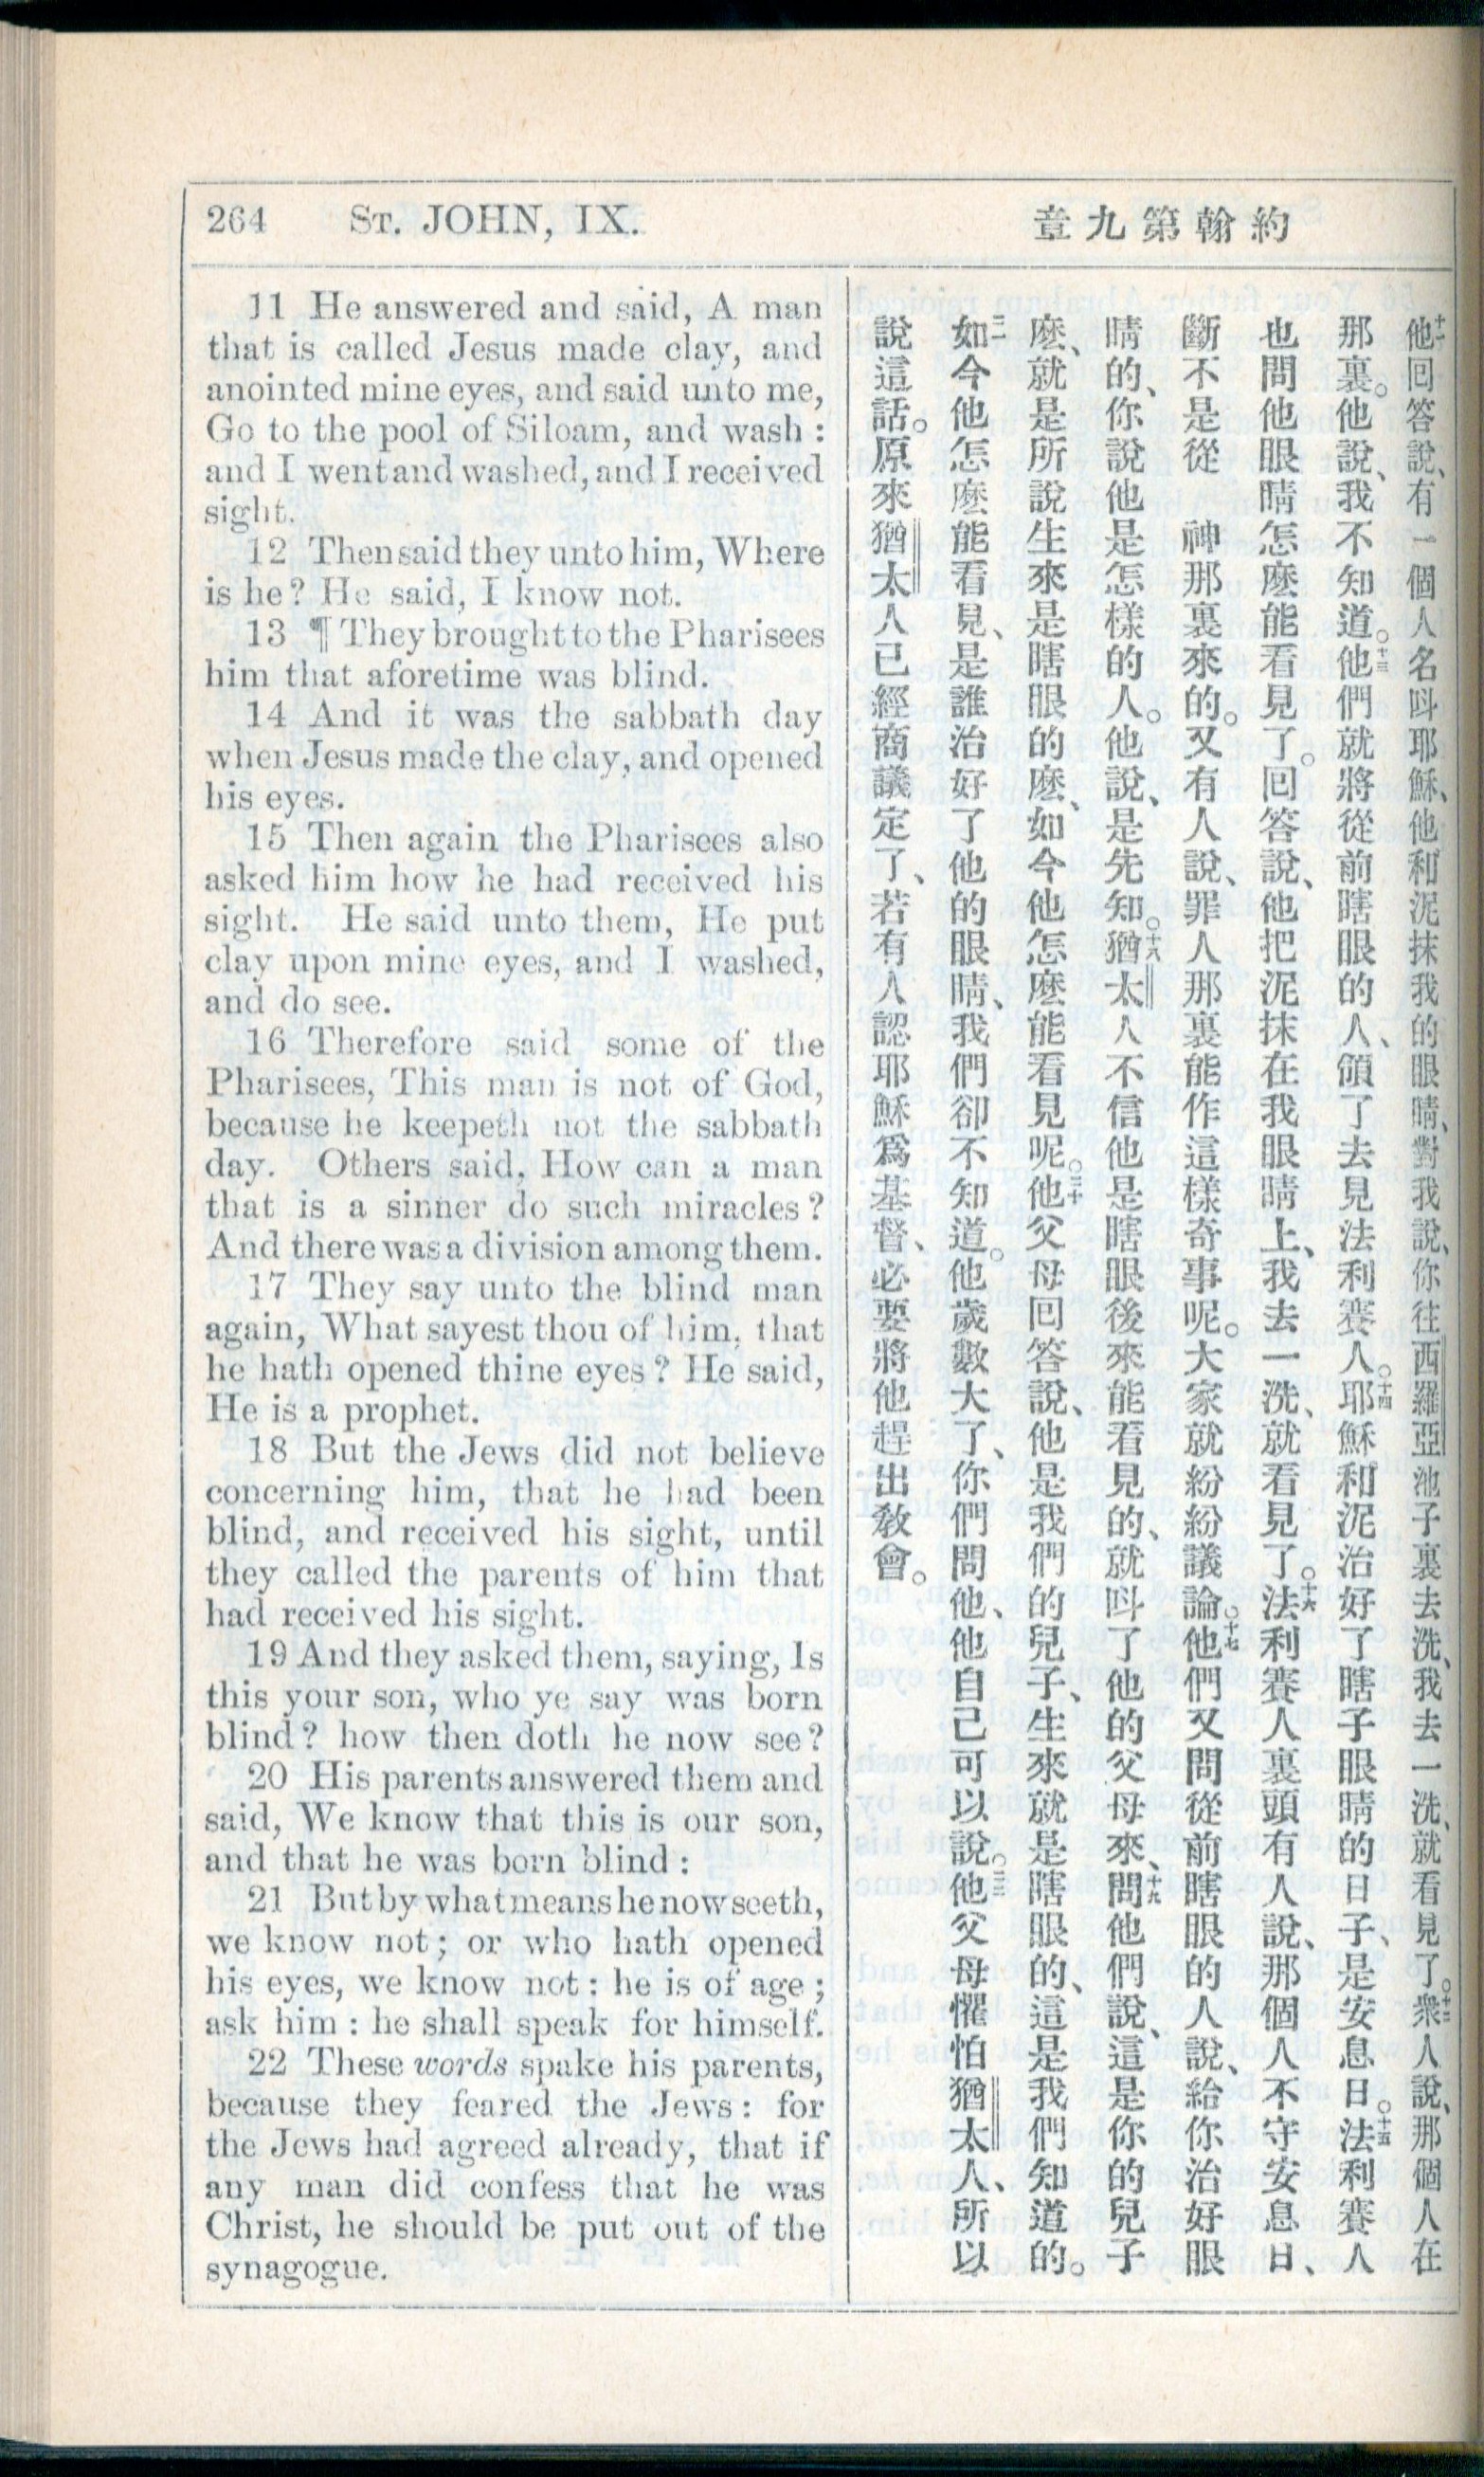 264 ST. JOHN, IX.
章九第翰約
11 He answered and said, A man
that is called Jesus made clay, and
anointed mine eyes, and said unto me,
Go to the pool of Siloam, and wash :
and I went and washed, and I received
sight.
12 Then said they unto him, Where
is he? He said, I know not.
13 ¶ They brought to the Pharisees
him that aforetime was blind.
14 And it was the sabbath day
when Jesus made the clay, and opened
his eyes.
15 Then again the Pharisees also
asked him how he had received his
sight. He said unto them, He put
clay upon mine eyes, and I washed,
and do see.
16 Therefore said some of the
Pharisees, This man is not of God,
because he keepeth not the sabbath
day. Others said, How can a man
that is a sinner do such miracles?
And there was a division among them.
17 They say unto the blind man
again, What sayest thou of him, that
he hath opened thine eyes? He said,
He is a prophet.
18 But the Jews did not believe
concerning him, that he had been
blind, and received his sight, until
they called the parents of him that
had received his sight.
19 And they asked them, saying, Is
this your son, who ye say was born
blind? how then doth he now see?
20 His parents answered them and
said, We know that this is our son,
and that he was born blind :
21 But by what means he now seeth,
we know not; or who hath opened
his eyes, we know not: he is of age;
ask him: he shall speak for himself.
22 These words spake his parents,
because they feared the Jews: for
the Jews had agreed already, that if
any man did confess that he was
Christ, he should be put out of the
synagogue.
十一他回答說、有一個人名呌耶穌、他和泥抹我的眼睛、對我說、你往西羅亞池子裏去洗、我去一洗、就看見了。十二衆人說、那個人在
那裏。他說、我不知道。十三他們就將從前瞎眼的人、領了去見法利賽人。十四耶穌和泥治好了瞎子眼睛的日子、是安息日。十五法利賽人
也問他眼睛怎麽能看見了。回答說、他把泥抹在我眼睛上、我去一洗、就看見了。十六法利賽人裏頭有人說、那個人不守安息日、
斷不是從 神那裏來的。又有人說、罪人那裏能作這樣奇事呢。大家就紛紛議論。十七他們又問從前瞎眼的人說、給你治好眼
睛的、你說他是怎樣的人。他說、是先知。十八猶太人不信他是瞎眼後來能看見的、就呌了他的父母來、十九問他們說、這是你的兒子
麽、就是所說生來是瞎眼的麽、如今他怎麽能看見呢。二十他父母回答說、他是我們的兒子、生來就是瞎眼的、這是我們知道的。
二一如今他怎麽能看見、是誰治好了他的眼睛、我們卻不知道。他歲數大了、你們問他、他自己可以說。二二他父母懼怕猶太人、所以
說這話。原來猶太人已經商議定了、若有人認耶穌爲基督、必要將他趕出敎會。